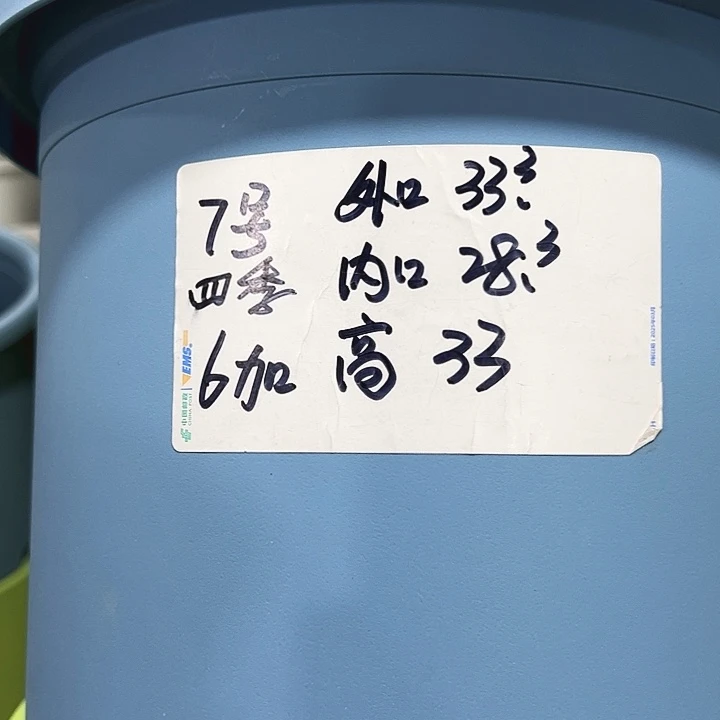 7号 外口 33.3
四季 内口 28.3
6加 高 33
EMS
中国邮政
CHINA POST